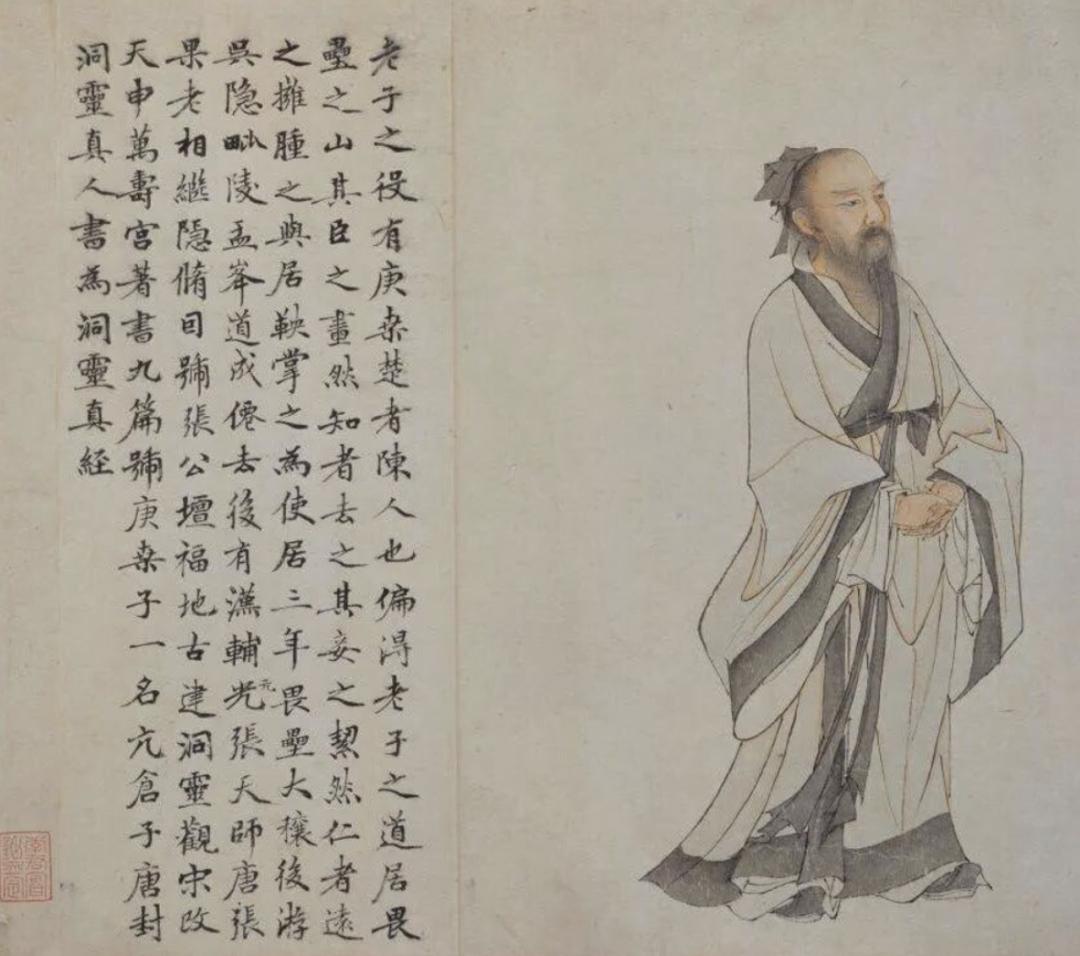 老子之役有庚桒楚者陳人也偏淂老子之道居畏
壘之山其臣之畫然知者去之其妾之絜然仁者遠
之擁腫之與居鞅掌之為使居三年畏壘大穰後游
吳隐毗陵孟峯道成僊去後有漢輔光元張天師唐張
果老相繼隱脩目號張公壇福地古建洞靈觀宋改
天申萬壽宮著書九篇號庚桒子一名亢倉子唐封
洞靈真人書為洞靈真經